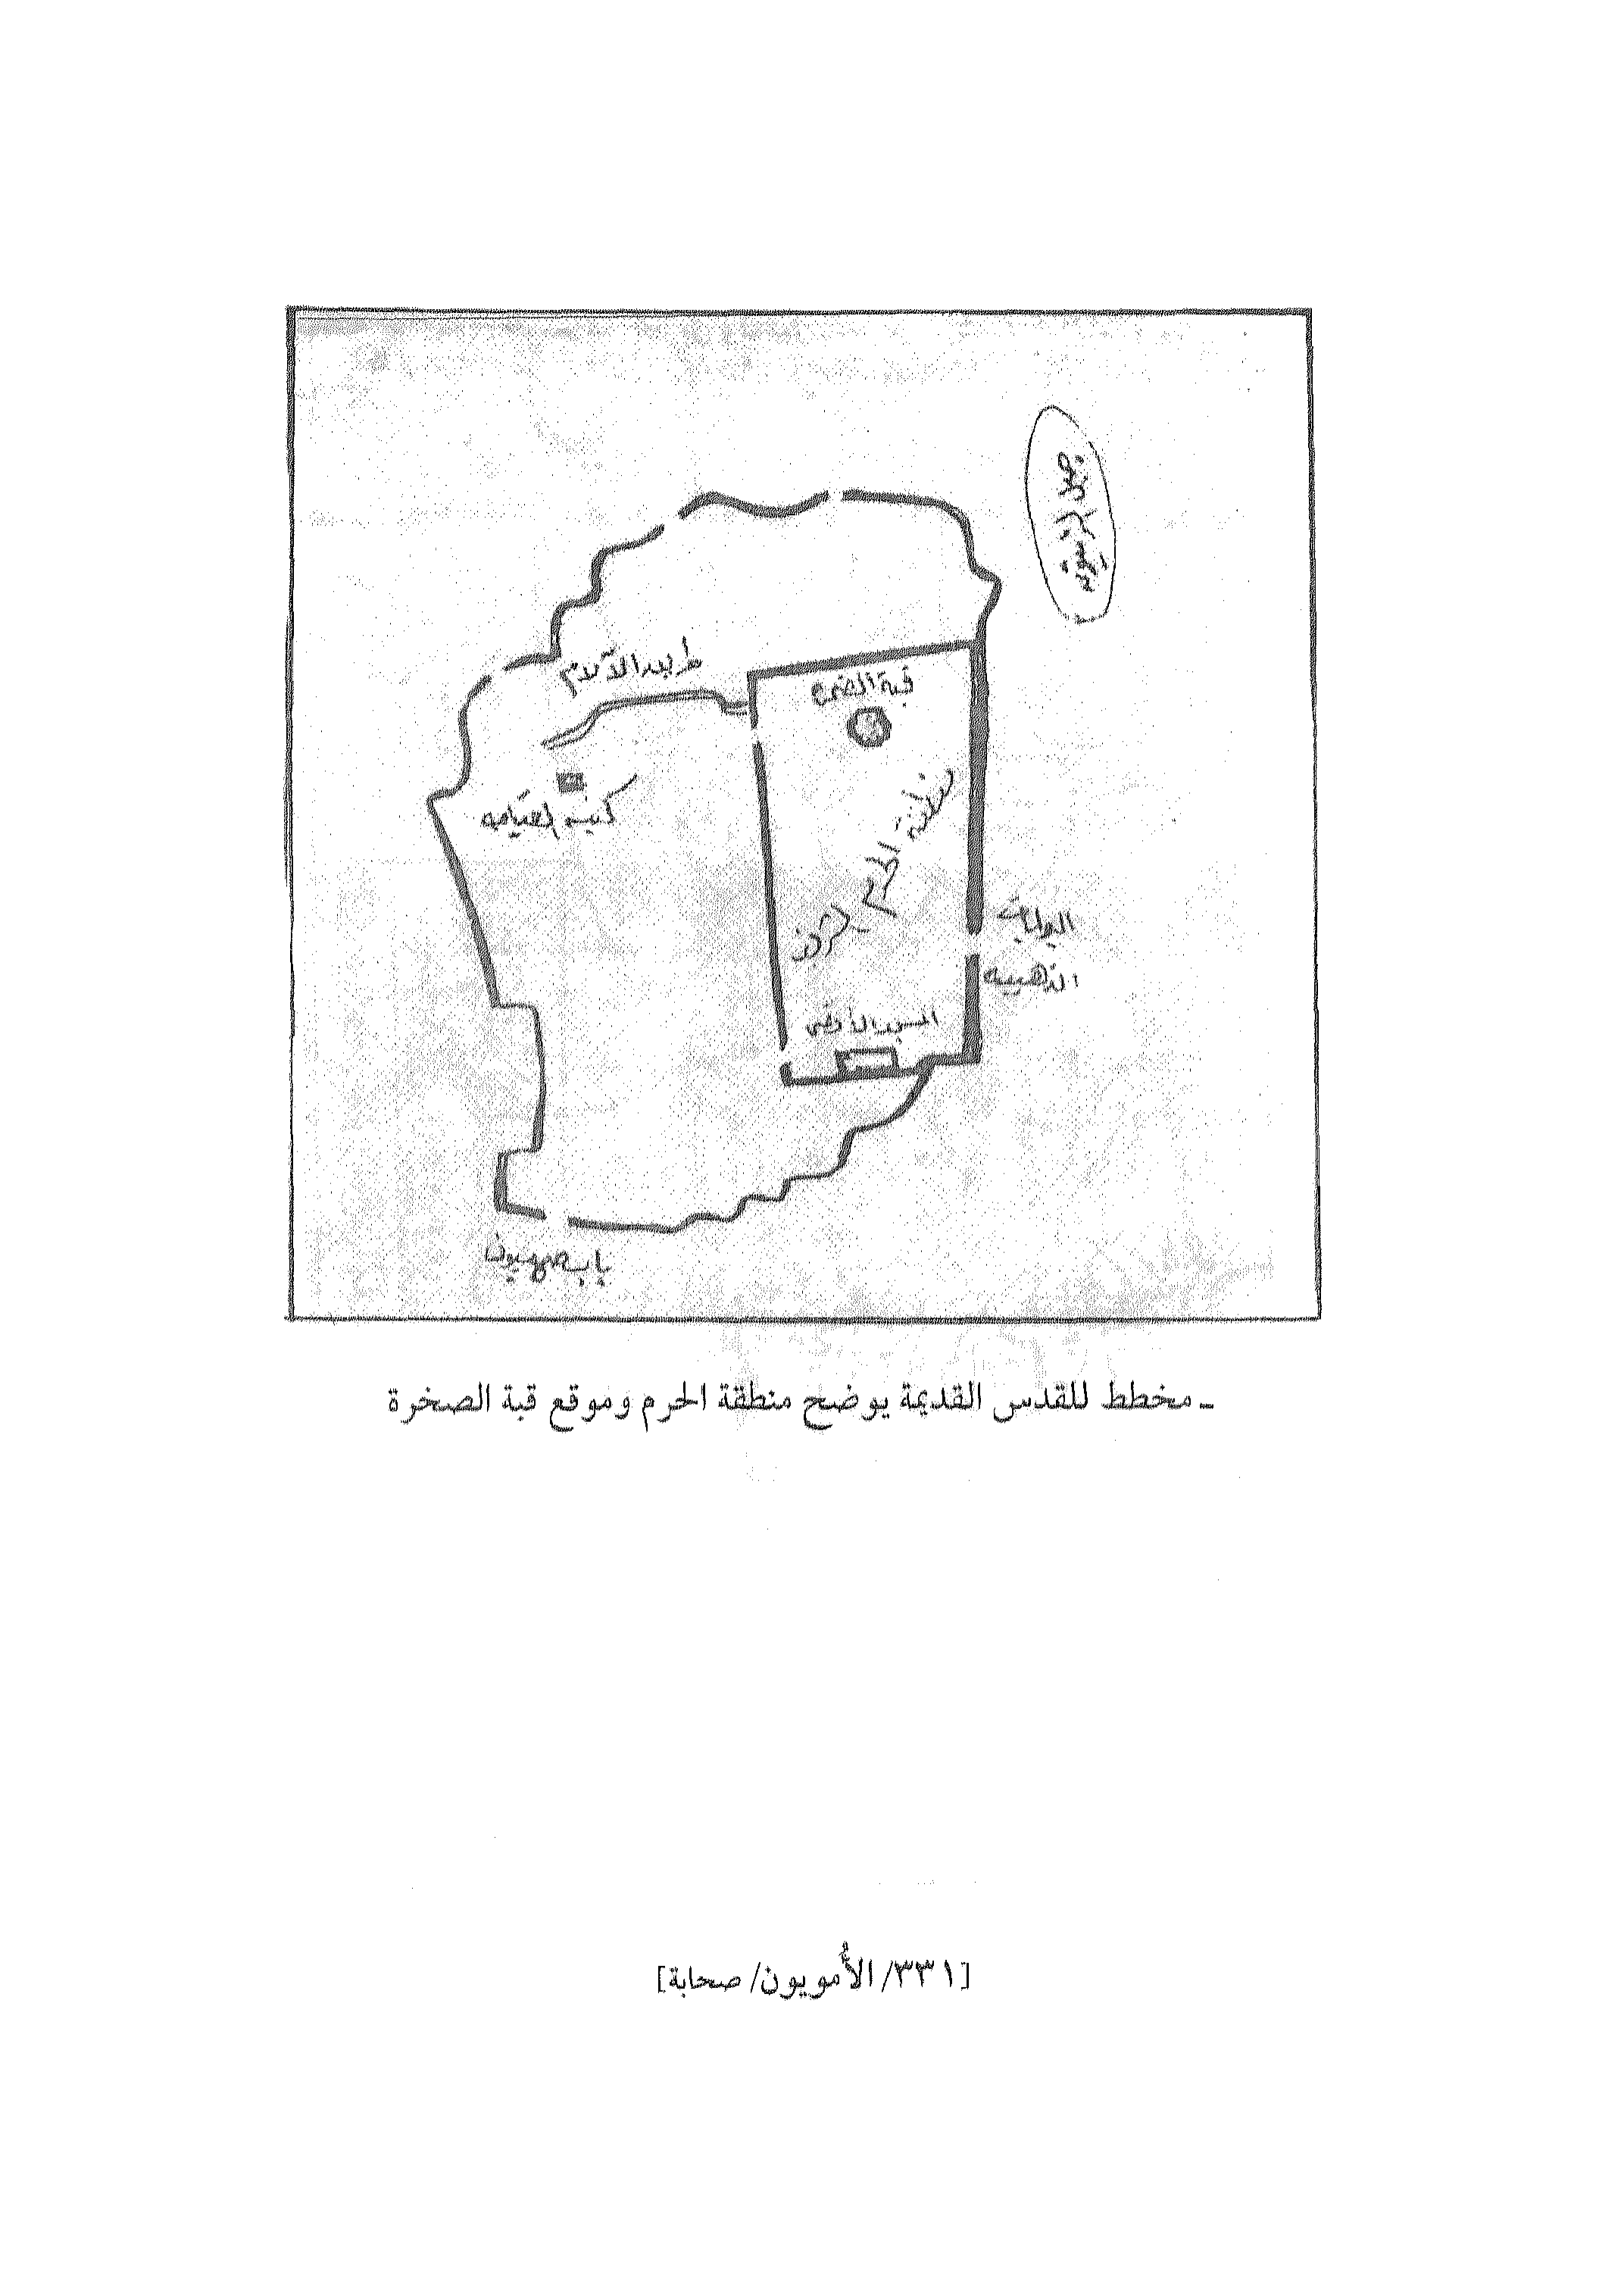 جبل الزيتون
طريق الآلام
قبة الصخرة
كنيسة القيامه
منطقة الحرم الشريف
البوابات
الذهبيه
المسجد الأقصى
باب صهيون
ـ مخطط للقدس القديمة يوضح منطقة الحرم وموقع قبة الصخرة
[٣٣١/ الأُمويون/ صحابة]